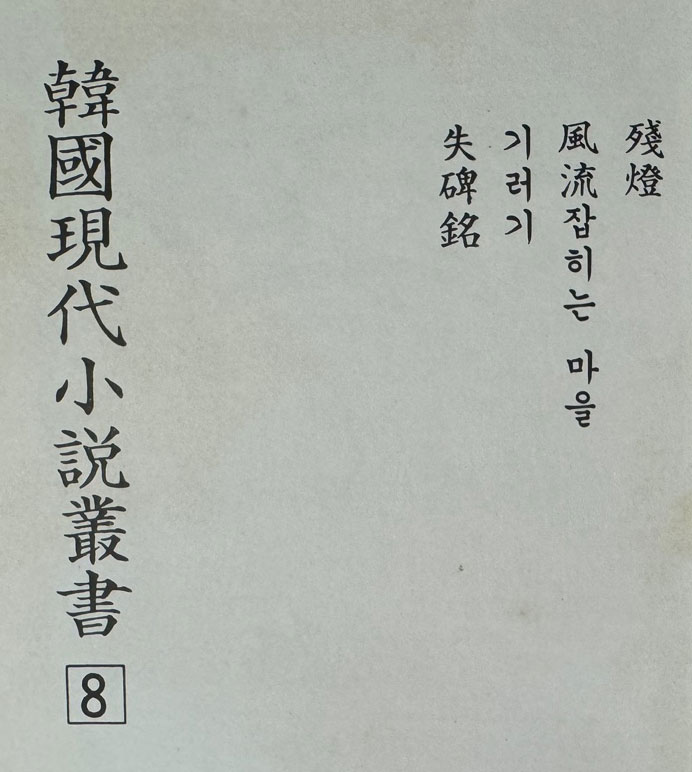 殘燈
風流잡히는 마을
기러기
失碑銘
韓國現代小説叢書
8